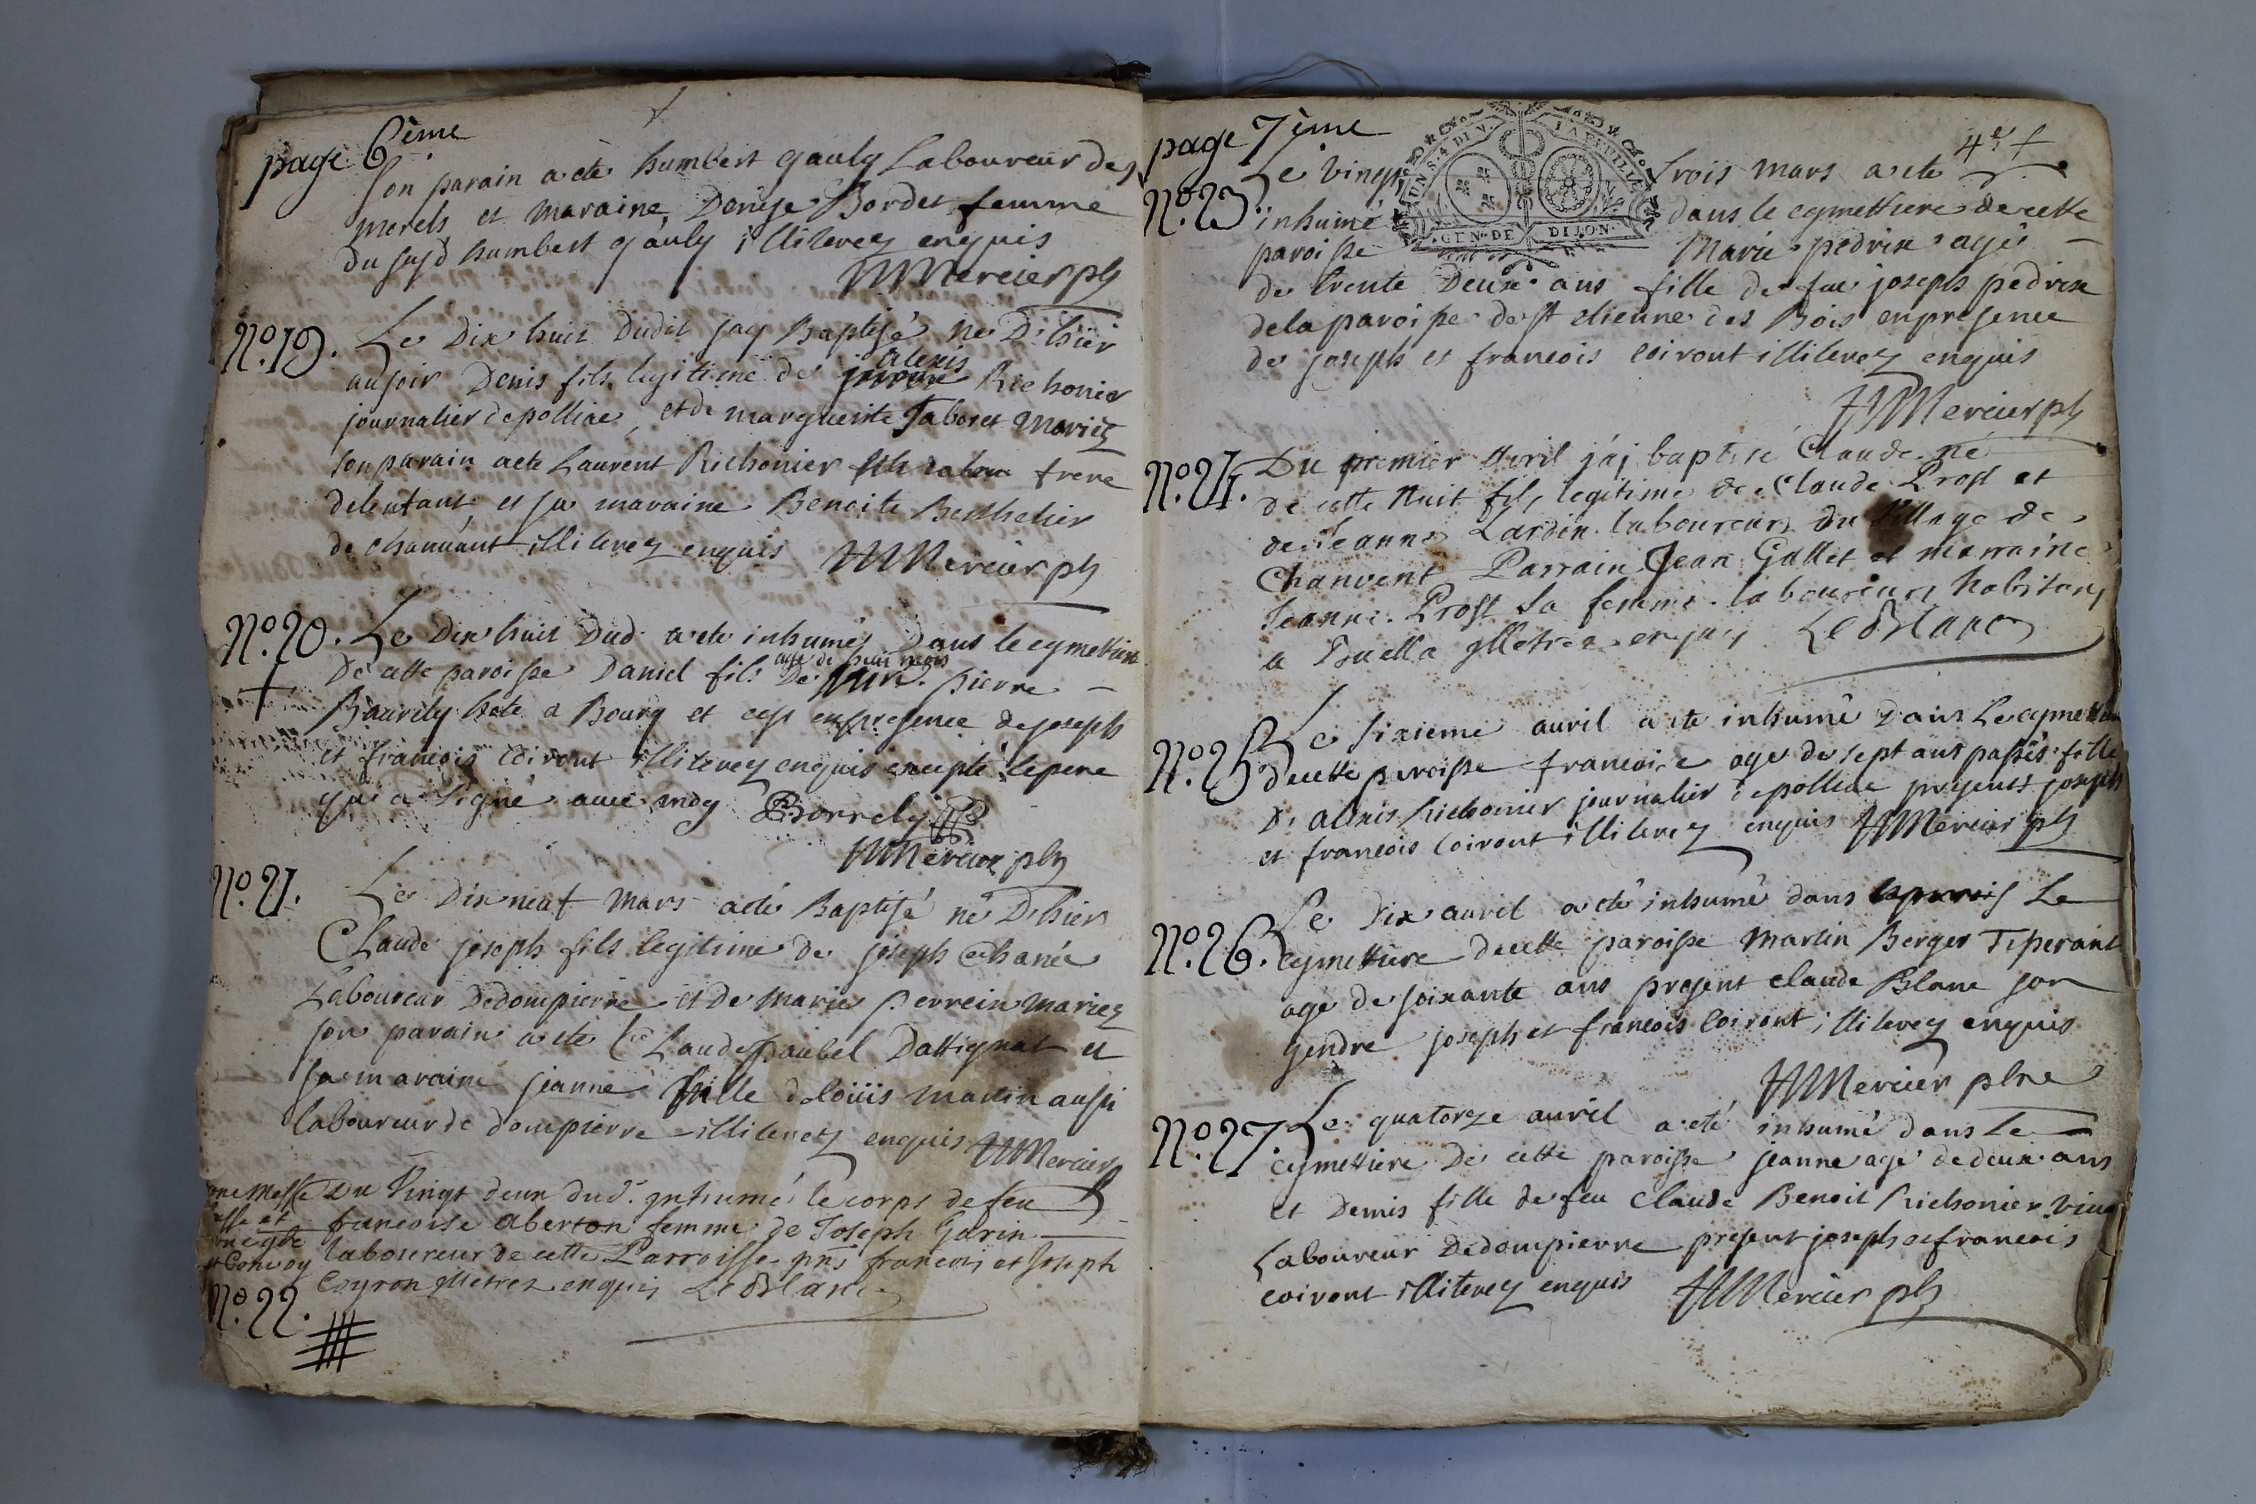 page 6ème
son parain a été humbert gauly Laboureur des
merels et maraine Denise Bordet femme
du susd humbert gauly illiterez enquis
Mercier ptr
N.º 19. Le Dix huit dudit jay Baptisé né D'hier
au soir Denis fils legitime de alexis Richonier
journalier de polliac, et de marguerite Taboret Mariez
son parain a été Laurent Richonier frere
de lenfant et sa maraine Benoite Berthelier
de Chanuant illiterez enquis Mercier ptr
N.º 20. Le Dix huit Dud a ete inhumé Dans le cymettiere
De cette paroisse Daniel fils De pierre
agé de huit mois
Baurely hote a Bourg et ce en presence de joseph
et francois Coiront illiterez enquis excepté le pere
qui a signé avec moy Borrely
Mercier ptr
N.º 21. Le Dix neuf mars a été Baptisé né D'hier
Claude joseph fils legitime de joseph Chanée
Laboureur De dompierre et De Marie perrein mariez
son parain a ete Claude paubel Dattignat et
sa maraine jeanne fille de loüis martin aussi
laboureur de dompierre illiterez enquis Mercier
Du Vingt deux dud. inhumé le corps de feu
francoise aberton femme de Joseph Garin
laboureur de cette Parroisse pns francois et Joseph
et Convoy
Coyron illetrez enquis LeBlanc
N.º 22.
page 7ème
4e
GEN. DE DIJON
N.º 23. Le vingt trois mars a ete
inhumé dans le cymettiere de cette
paroisse Marie pedrix agé
de trente Deux ans fille de feu joseph pedrix
de la paroisse de st etienne des Bois en presence
de joseph et francois Coiront illiterez enquis
Mercier ptr
N.º 24. Du premier Avril j'ai baptisé Claude né
de cette Nuit fils legitime de Claude Prost et
de Jeanne Lardin laboureurs du Village de
Chanvent Parrain Jean Gallet et marraine
Jeanne Prost sa femme laboureurs habitans
a Buella illetrez enquis LeBlanc
N.º 25. Le sixieme avril a ete inhumé Dans Le cymettiere
de cette paroisse francoise age de sept ans passés fille
D'alexis Richonier journalier de polliac presents joseph
et francois Coiront illiterez enquis Mercier ptr
N.º 26. Le Dix avril a eté inhumé dans Le
cymettiere de cette paroisse Martin Berger Tiperant
agé de soixante ans present claude Blanc son
gendre joseph et francois Coiront illiterez enquis
Mercier ptre
N.º 27. Le quatorze avril a été inhumé dans Le
cymettiere De cette paroisse jeanne agé de deux ans
et Demis fille de feu Claude Benoit Richonier
Laboureur De dompierre present joseph et francois
coiront illiterez enquis Mercier ptr